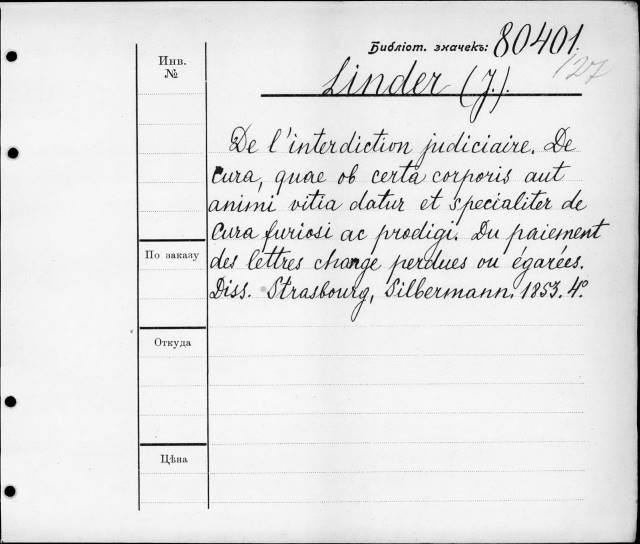 Библіот. значекъ: 80401.
127
Инв.
№
Linder (J.).
De l'interdiction judiciaire. De
cura, quae ob certa corporis aut
animi vitia datur et specialiter de
cura furiosi ac prodigi. Du paiement
des lettres change perdues ou égarées.
Diss. Strasbourg, Silbermann. 1853. 4°.
По заказу
Откуда
Цѣна